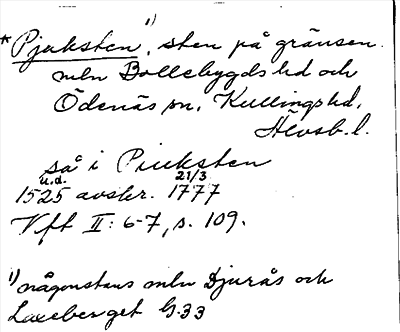 * Pjuksten ¹⁾, sten på gränsen
mln Bollebygds hd och
Ödenäs sn, Kullings hd,
Älvsb. l.
så i Piuksten
u.d. 21/3
1525 avskr. 1777
Vft II: 6-7, s. 109.
¹⁾ någonstans mln Djurås och
Laxeberget G.33